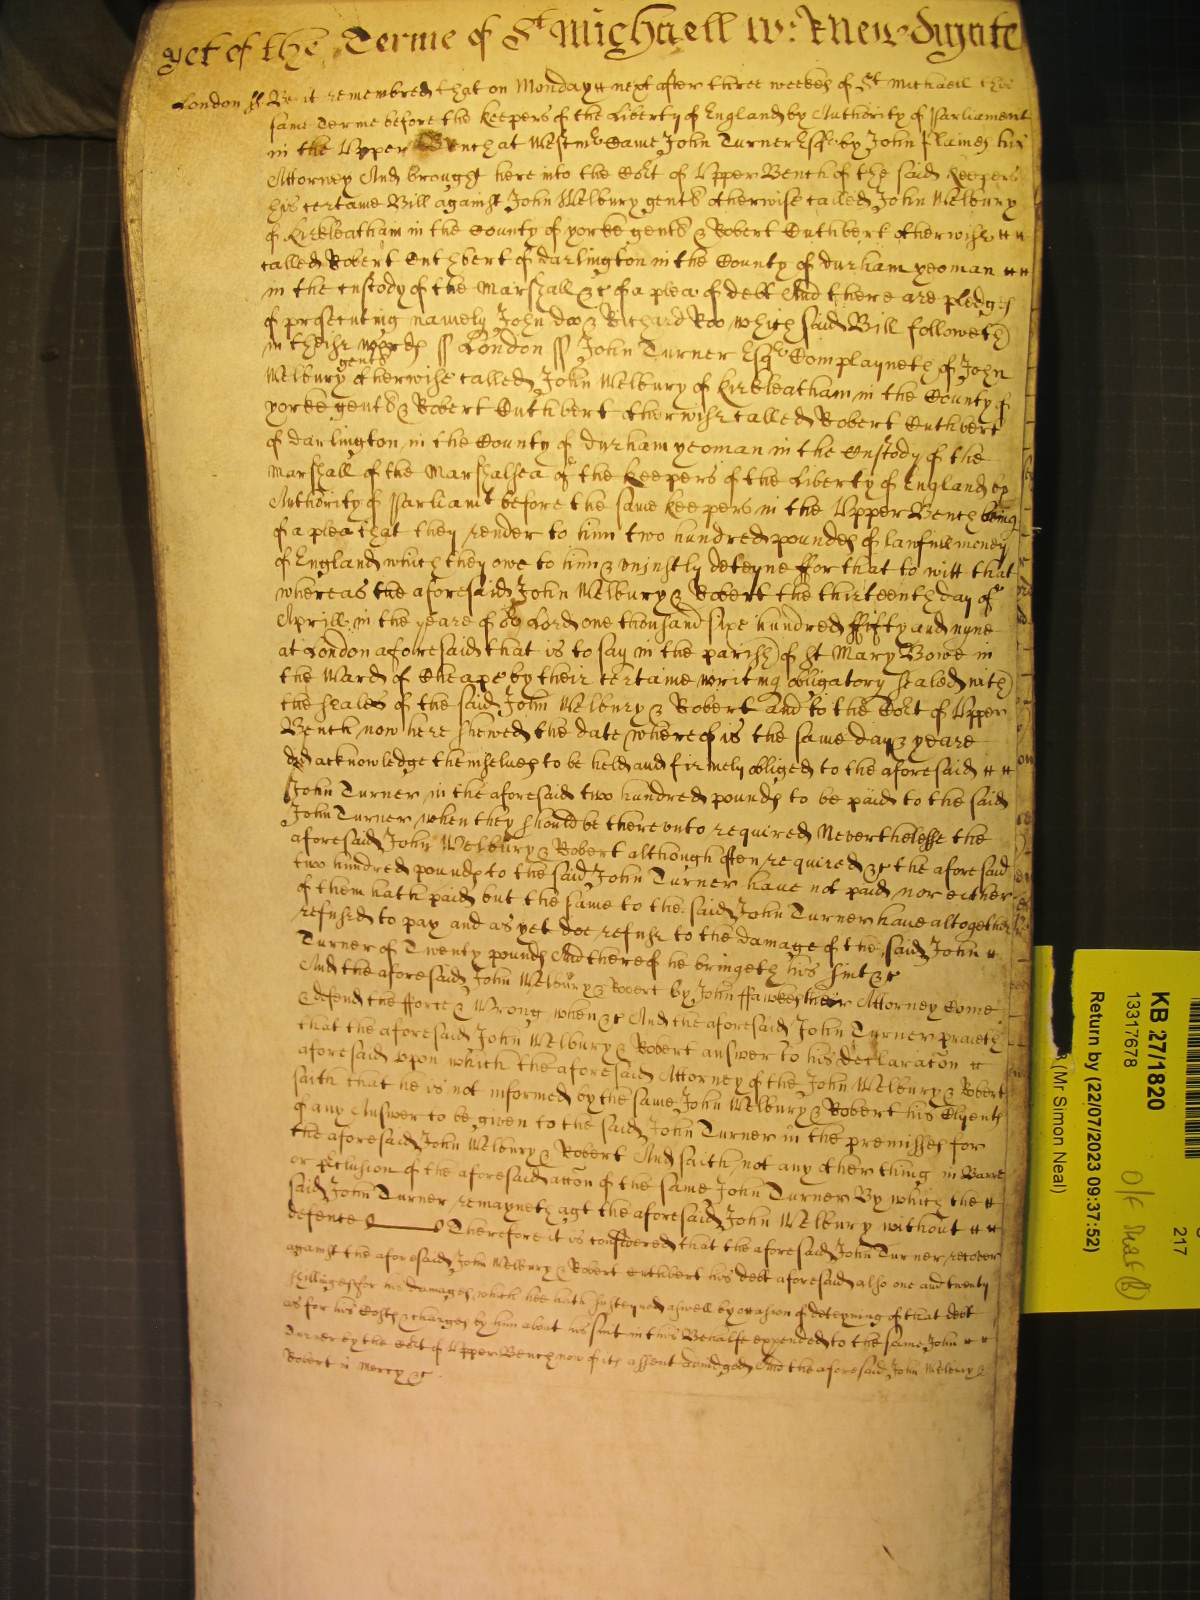 yet of the Terme of St Michaell W: R Newdigate
London ss Be it remembred that on Monday next after three weekes of St Michaell this
same Terme before the Keepers of the Liberty of England by Authority of Parliament
in the Vpper Bench at Westmr Came John Turner Esqr by John his
Attorney And brought here into the Cort of Vpper Bench of the said Keepers
his certaine Bill against John Welbury gent otherwise called John Welbury
of Kirkleatham in the County of yorke gent & Robert Cuthbert otherwise
called Robert Cuthbert of darlington in the County of durham yeoman
in the custody of the Marshall &c of a plea of debt And there are pledges
of prosecuting namely John doo & Richard Roo which said Bill followeth
in theise words ss London ss John Turner Esqr Complayneth of John
Welbury gent otherwise called John Welbury of Kirkleatham in the County of
yorke gent & Robert Cuthbert otherwise called Robert Cuthbert
of darlington in the County of durham yeoman in the Custody of the
Marshall of the Marshalsea of the Keepers of the Liberty of England by
Authority of Parliamt before the same Keepers in the Vpper Bench being
of a plea that they render to him two hundred poundes of lawfull money
of England which they owe to him & vniustly deteyne ffor that to witt that
whereas the aforesaid John Welbury & Robert the thirteenth day of
Aprill in the yeare of or Lord one thousand sixe hundred ffifty and nyne
at London aforesaid that is to say in the parish of St Mary Bowe in
the Ward of Cheape by their certaine writing obligatory sealed with
the seales of the said John Welbury & Robert and to the Cort of Vpper
Bench now here shewed the date whereof is the same day & yeare
did acknowledge themselues to be held and firmely obliged to the aforesaid
John Turner in the aforesaid two hundred pounds to be paid to the said
John Turner when they should be therevnto required Neverthelesse the
aforesaid John Welbury & Robert although often required &c the aforesaid
two hundred pounds to the said John Turner have not paid nor either
of them hath paid but the same to the said John Turner have altogether
refused to pay and as yet doe refuse to the damage of the said John
Turner of Twenty pounds And thereof he bringeth his suit &c
And the aforesaid John Welbury & Robert by John ffawkes their Attorney Come
& defend the fforce & Wrong when &c And the aforesaid John Turner praieth
that the aforesaid John Welbury & Robert answer to his declaracon
aforesaid vpon which the aforesaid Attorney of the John Welbury & Robert
saith that he is not informed by the same John Welbury & Robert his Clyents
of any Answer to be given to the said John Turner in the premisses for
the aforesaid John Welbury & Robert And saith not any other thing in Barre
or preclusion of the aforesaid accon of the same John Turner By which the
said John Turner remayneth agt the aforesaid John Welbury without
defence Therefore it is considered that the aforesaid John Turner recover
against the aforesaid John Welbury & Robert Cuthbert his debt aforesaid also one and twenty
shillinges for his damages which hee hath susteyned aswell by occasion of deteyning of that debt
as for his Costs & charges by him about his suit in this Behalfe expended to the same John
Turner by the Cort of Vpper Bench now of its assent adiudged And the aforesaid John Welbury &
Robert in Mercy &c
KB 27/1820
13317678
Return by (22/07/2023 09:37:52)
(Mr Simon Neal)
217